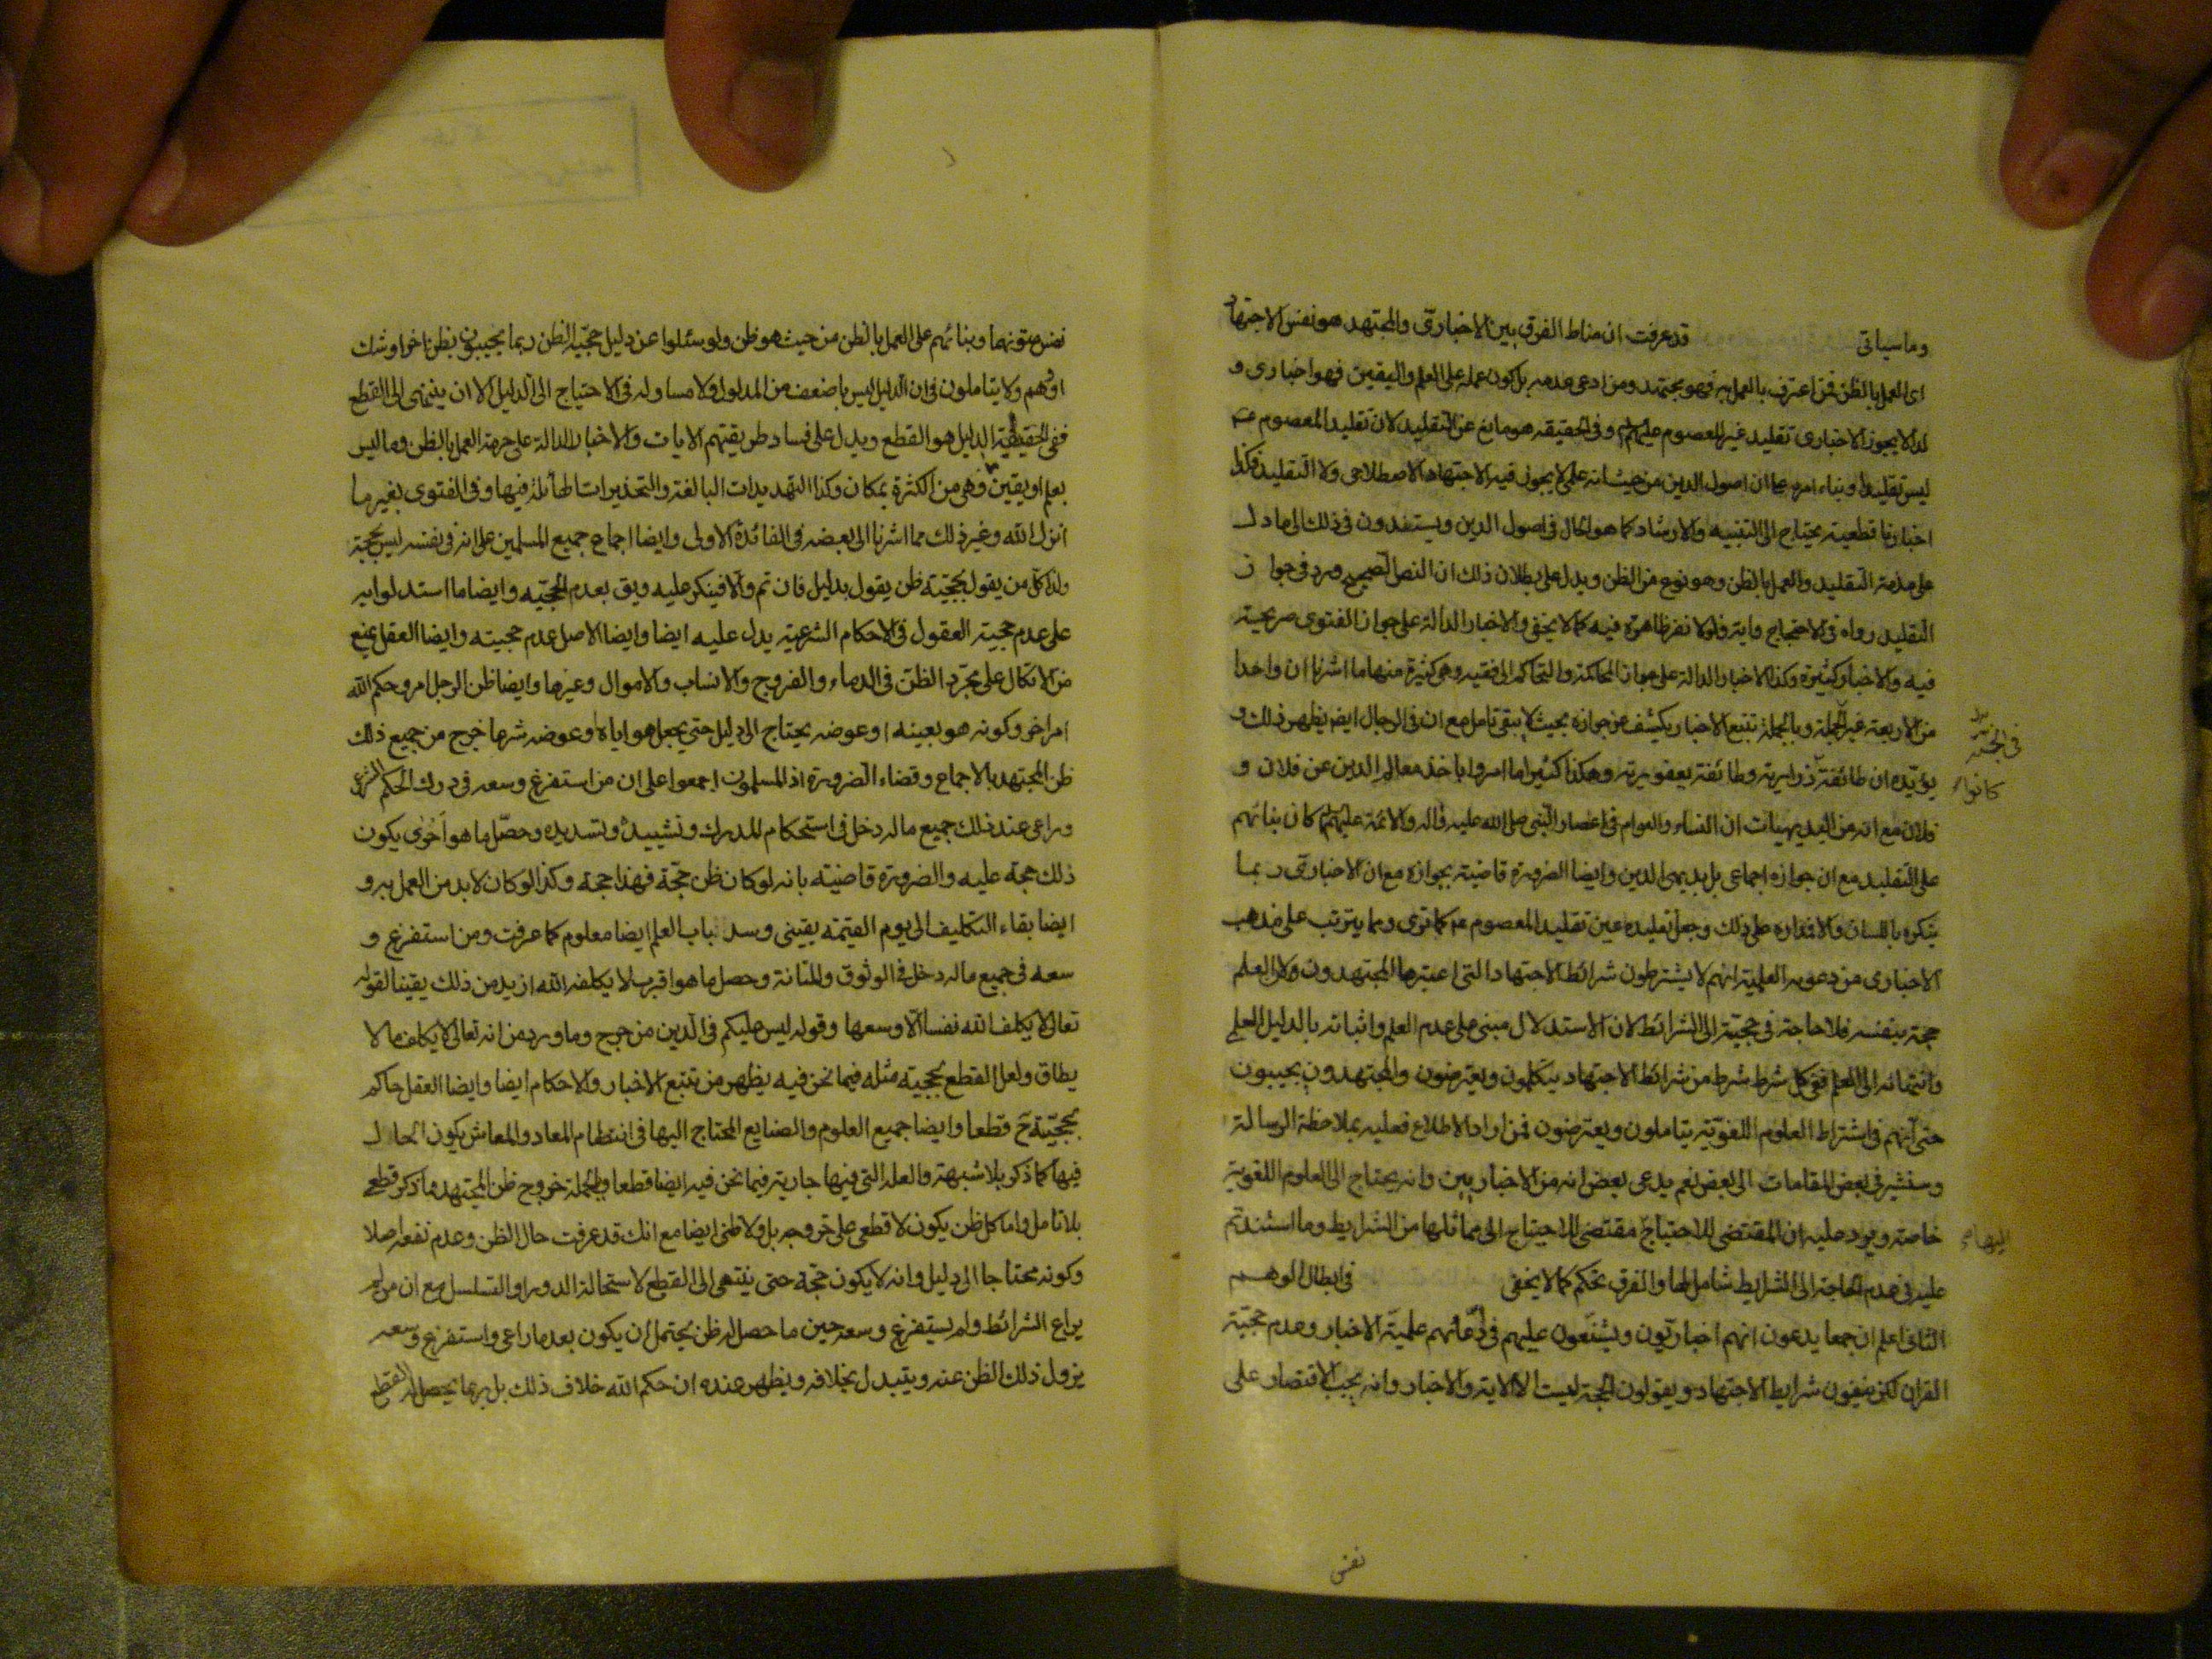 وما سياتى قد عرفت ان مناط الفرق بين الاخبارى والمجتهد هو نفس الاجتهاد
اى العمل بالظن فمن اعترف بالعمل به فهو مجتهد ومن ادعى عدمه بل كون عمله على العلم واليقين فهو اخبارى و
لذا لا يجوز الاخبارى تقليد غير المعصوم وفى الحقيقه هو مانع عن التقليد لان تقليد المعصوم عه
ليس تقليدا وبناء امره على ان اصول الدين من حيث انه علمى لا يجوز فيه الاجتهاد الاصطلاحى ولا التقليد فكذا
اخبارنا قطعية يحتاج الى التنبيه والارشاد كما هو الحال فى اصول الدين ويستندون فى ذلك الى ما دل
على مذمة التقليد والعمل بالظن وهو نوع من الظن ويدل على بطلان ذلك ان النص الصحيح ورد فى جواز
التقليد رواه فى الاحتجاج واية فلولا نفر ظاهرة فيه كما لا يخفى والاخبار الدالة على جواز الفتوى صريحة
فيه والاخبار كثيرة وكذا الاخبار الدالة على جواز المحاكمة والتحاكم الى فقيه وهى كثيرة منها ما اشرنا ان واحدا
من الاربعة غير الجملة وبالجملة تتبع الاخبار يكشف عن جوازه بحيث لا يبقى تامل مع ان فى الرجال ايضا يظهر ذلك و
فى الجنة
يؤيده ان طائفة زرارية وطائفة يعفورية وهكذا كثيرا ما امروا باخذ معالم الدين عن فلان و
كانوا
فلان مع انه من البديهيات ان النساء والعوام فى اعصار النبى صلى الله عليه واله والائمة عليهم كان بنائهم
على التقليد مع ان جوازه اجماعى بل بديهى الدين وايضا الضرورة قاضية بجوازه مع ان الاخبارى ربما
ينكره باللسان والا فمداره على ذلك وجعل تقليده عين تقليد المعصوم عه كما ترى ومما يترتب على مذهب
الاخبارى من دعويه العلمية انهم لا يشترطون شرائط الاجتهاد التى اعتبرها المجتهدون ولان العلم
حجة بنفسه فلا حاجة فى حجيته الى الشرائط لان الاستدلال مبنى على عدم العلم واثباته بالدليل العلمى
وانتهائه الى العلم ففى كل شرط شرط من شرائط الاجتهاد يتكلمون ويعترضون والمجتهدون يجيبون
حتى انهم فى اشتراط العلوم اللغوية يتاملون ويعترضون فمن اراد الاطلاع فعليه بملاحظة الرسالة
وسنشير فى بعض المقامات الى بعض نعم يدعى بعض انه من الاخباريين وانه يحتاج الى العلوم اللغوية
خاصة ويرد عليه ان المقتضى للاحتياج مقتضى للاحتياج الى مماثلها من الشرايط وما استندتم
اليها
عليه فى عدم الحاجة الى الشرايط شامل لها والفرق تحكم كما لا يخفى فى ابطال الوهم
الثانى اعلم ان جمعا يدعون انهم اخباريون ويشنعون عليهم فى ادعائهم علمية الاخبار وعدم حجية
القران لكن ينفون شرايط الاجتهاد ويقولون الحجة ليست الا الاية والاخبار وانه يجب الاقتصار على
نفس
نفس متونهما وبنائهم على العمل بالظن من حيث هو ظن ولو سئلوا عن دليل حجية الظن ربما يجيبون بظن اخر او شك
او وهم ولا يتاملون فى ان الدليل ليس باضعف من المدلول ولا مساو له فى الاحتياج الى الدليل الا ان ينتهى الى القطع
ففى الحقيقة الدليل هو القطع ويدل على فساد طريقتهم الايات والاخبار الدالة على حرمة العمل بالظن وما ليس
بعلم او يقين وهى من الكثرة بمكان وكذا التهديدات البالغة والتحذيرات الهائلة فيها وفى الفتوى بغير ما
انزل الله وغير ذلك مما اشرنا الى بعضه فى الفائدة الاولى وايضا اجماع جميع المسلمين على انه فى نفسه ليس بحجة
ولذا كل من يقول بحجية ظن يقول بدليل فان تم والا فينكر عليه ويق بعدم الحجيه وايضا ما استدلوا به
على عدم حجية العقول فى الاحكام الشرعية يدل عليه ايضا وايضا الاصل عدم حجيته وايضا العقل يمنع
من الاتكال على مجرد الظن فى الدماء والفروج والانساب والاموال وغيرها وايضا ظن الرجل امر وحكم الله
امر اخر وكونه هو بعينه او عوضه يحتاج الى دليل حتى يجعل هو اياه او عوضه شرعا خرج من جميع ذلك
ظن المجتهد بالاجماع وقضاء الضرورة اذ المسلمون اجمعوا على ان من استفرغ وسعه فى درك الحكم الشرعى
وراعى عند ذلك جميع ماله دخل فى استحكام المدرك وتشييده وتسديده وحصل ما هو احرى يكون
ذلك حجة عليه والضرورة قاضية بانه لو كان ظن حجة فهذا حجة وكذا لو كان لا بد من العمل به و
ايضا بقاء التكليف الى يوم القيمة يقينى وسد باب العلم ايضا معلوم كما عرفت ومن استفرغ و
سعه فى جميع ماله دخل فى الوثوق والمتانة وحصل ما هو اقرب لا يكلفه الله ازيد من ذلك يقينا لقوله
تعالى لا يكلف الله نفسا الا وسعها وقوله ليس عليكم فى الدين من حرج وما ورد من انه تعالى لا يكلف ما لا
يطاق ولعل القطع بحجية مثله فيما نحن فيه يظهر من تتبع الاخبار والاحكام ايضا وايضا العقل حاكم
بحجية ح قطعا وايضا جميع العلوم والصنايع المحتاج اليها فى انتظام المعاد والمعاش يكون الحال
فيها كما ذكر بلا شبهة والعلة التى فيها جارية فيما نحن فيه ايضا قطعا وبالجملة خروج ظن المجتهد مما ذكر قطعى
بلا تامل واما كل ظن يكون لا قطعى على خروجه بل ولا ظنى ايضا مع انك قد عرفت حال الظن وعدم نفعه اصلا
وكونه محتاجا الى دليل وانه لا يكون حجة حتى ينتهى الى القطع لاستحالة الدور او التسلسل مع ان من لم
يراع الشرائط ولم يستفرغ وسعه حين ما حصل له ظن يحتمل ان يكون بعد ما راعى واستفرغ وسعه
يزول ذلك الظن عنه ويتبدل بخلافه ويظهر عنده ان حكم الله خلاف ذلك بل ربما يحصل له القطع